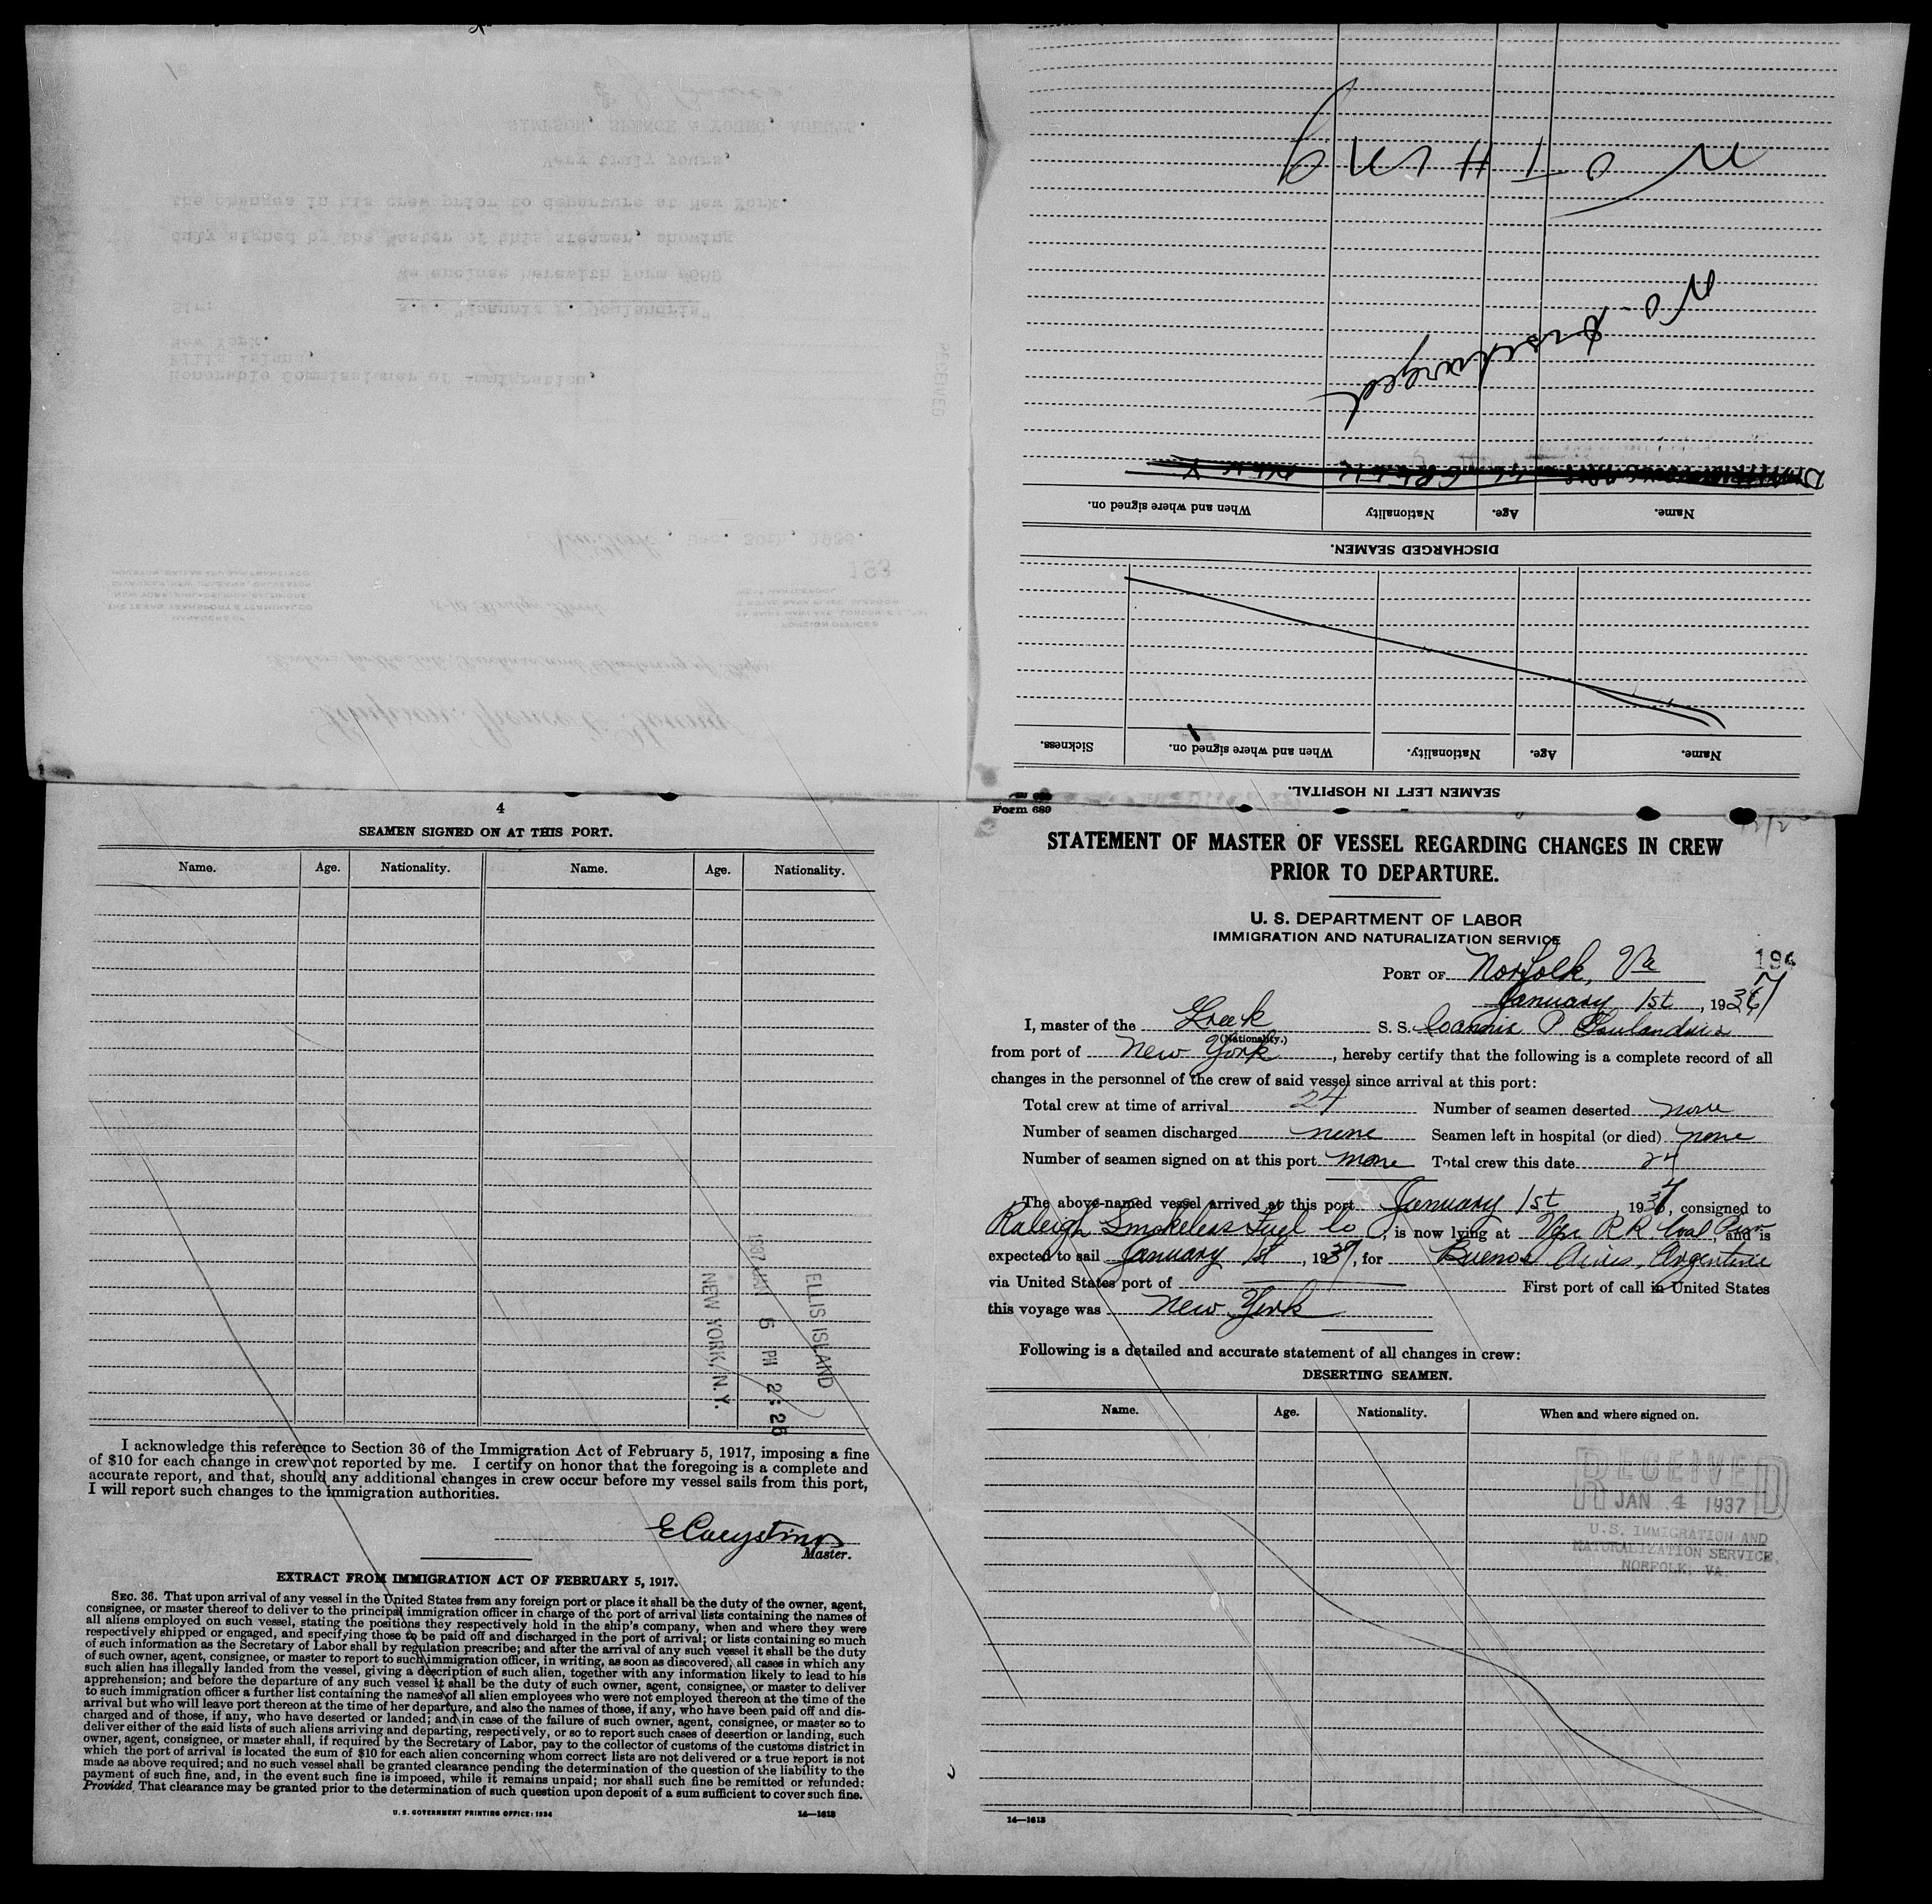 SEAMEN LEFT IN HOSPITAL.
Name. Age. Nationality. When and where signed on. Sickness.
DISCHARGED SEAMEN.
Name. Age. Nationality When and where signed on.
No- Discharged
NOTHING
Simpson, Spence & Young
FOREIGN OFFICES
MANAGERS OF
THE TEXAS TRANSPORT & TERMINAL CO
8-10 Bridge Street
193
New York, Dec. 30th, 1936.
RECEIVED
Honorable Commissioner of Immigration,
Ellis Island,
New York.
Sir: S.S. "Ioannis P. Goulandris"
We enclose herewith Form #689
duly signed by the Master of this steamer, showing
the changes in his crew prior to departure at New York.
Very truly yours,
SIMPSON, SPENCE & YOUNG, AGENTS.
4
SEAMEN SIGNED ON AT THIS PORT.
Name. Age. Nationality. Name. Age. Nationality.
ELLIS ISLAND
1937 JAN 5 PM 2:25
NEW YORK, N.Y.
I acknowledge this reference to Section 36 of the Immigration Act of February 5, 1917, imposing a fine
of $10 for each change in crew not reported by me. I certify on honor that the foregoing is a complete and
accurate report, and that, should any additional changes in crew occur before my vessel sails from this port,
I will report such changes to the immigration authorities.
Master.
EXTRACT FROM IMMIGRATION ACT OF FEBRUARY 5, 1917.
SEC. 36. That upon arrival of any vessel in the United States from any foreign port or place it shall be the duty of the owner, agent,
consignee, or master thereof to deliver to the principal immigration officer in charge of the port of arrival lists containing the names of
all aliens employed on such vessel, stating the positions they respectively hold in the ship's company, when and where they were
respectively shipped or engaged, and specifying those to be paid off and discharged in the port of arrival; or lists containing so much
of such information as the Secretary of Labor shall by regulation prescribe; and after the arrival of any such vessel it shall be the duty
of such owner, agent, consignee, or master to report to such immigration officer, in writing, as soon as discovered, all cases in which any
such alien has illegally landed from the vessel, giving a description of such alien, together with any information likely to lead to his
apprehension; and before the departure of any such vessel it shall be the duty of such owner, agent, consignee, or master to deliver
to such immigration officer a further list containing the names of all alien employees who were not employed thereon at the time of the
arrival but who will leave port thereon at the time of her departure, and also the names of those, if any, who have been paid off and dis-
charged and of those, if any, who have deserted or landed; and in case of the failure of such owner, agent, consignee, or master so to
deliver either of the said lists of such aliens arriving and departing, respectively, or so to report such cases of desertion or landing, such
owner, agent, consignee, or master shall, if required by the Secretary of Labor, pay to the collector of customs of the customs district in
which the port of arrival is located the sum of $10 for each alien concerning whom correct lists are not delivered or a true report is not
made as above required; and no such vessel shall be granted clearance pending the determination of the question of the liability to the
payment of such fine, and, in the event such fine is imposed, while it remains unpaid; nor shall such fine be remitted or refunded:
Provided, That clearance may be granted prior to the determination of such question upon deposit of a sum sufficient to cover such fine.
U. S. GOVERNMENT PRINTING OFFICE: 1934 14—1613
Form 689
STATEMENT OF MASTER OF VESSEL REGARDING CHANGES IN CREW
PRIOR TO DEPARTURE.
U. S. DEPARTMENT OF LABOR
IMMIGRATION AND NATURALIZATION SERVICE
PORT OF Norfolk, Va
January 1st, 1937
I, master of the Greek S. S. Ioannis P Goulandris
(Nationality.)
from port of New York, hereby certify that the following is a complete record of all
changes in the personnel of the crew of said vessel since arrival at this port:
Total crew at time of arrival 24 Number of seamen deserted none
Number of seamen discharged none Seamen left in hospital (or died) none
Number of seamen signed on at this port none Total crew this date 24
The above-named vessel arrived at this port January 1st, 1937, consigned to
Raleigh Smokeless Fuel Co, is now lying at Vgn R R Coal Pier and is
expected to sail January 1st, 1937, for Buenos Aires, Argentine
via United States port of First port of call in United States
this voyage was New York
Following is a detailed and accurate statement of all changes in crew:
DESERTING SEAMEN.
Name. Age. Nationality. When and where signed on.
RECEIVED
JAN 4 1937
U.S. IMMIGRATION AND
NATURALIZATION SERVICE,
NORFOLK, VA.
14—1613